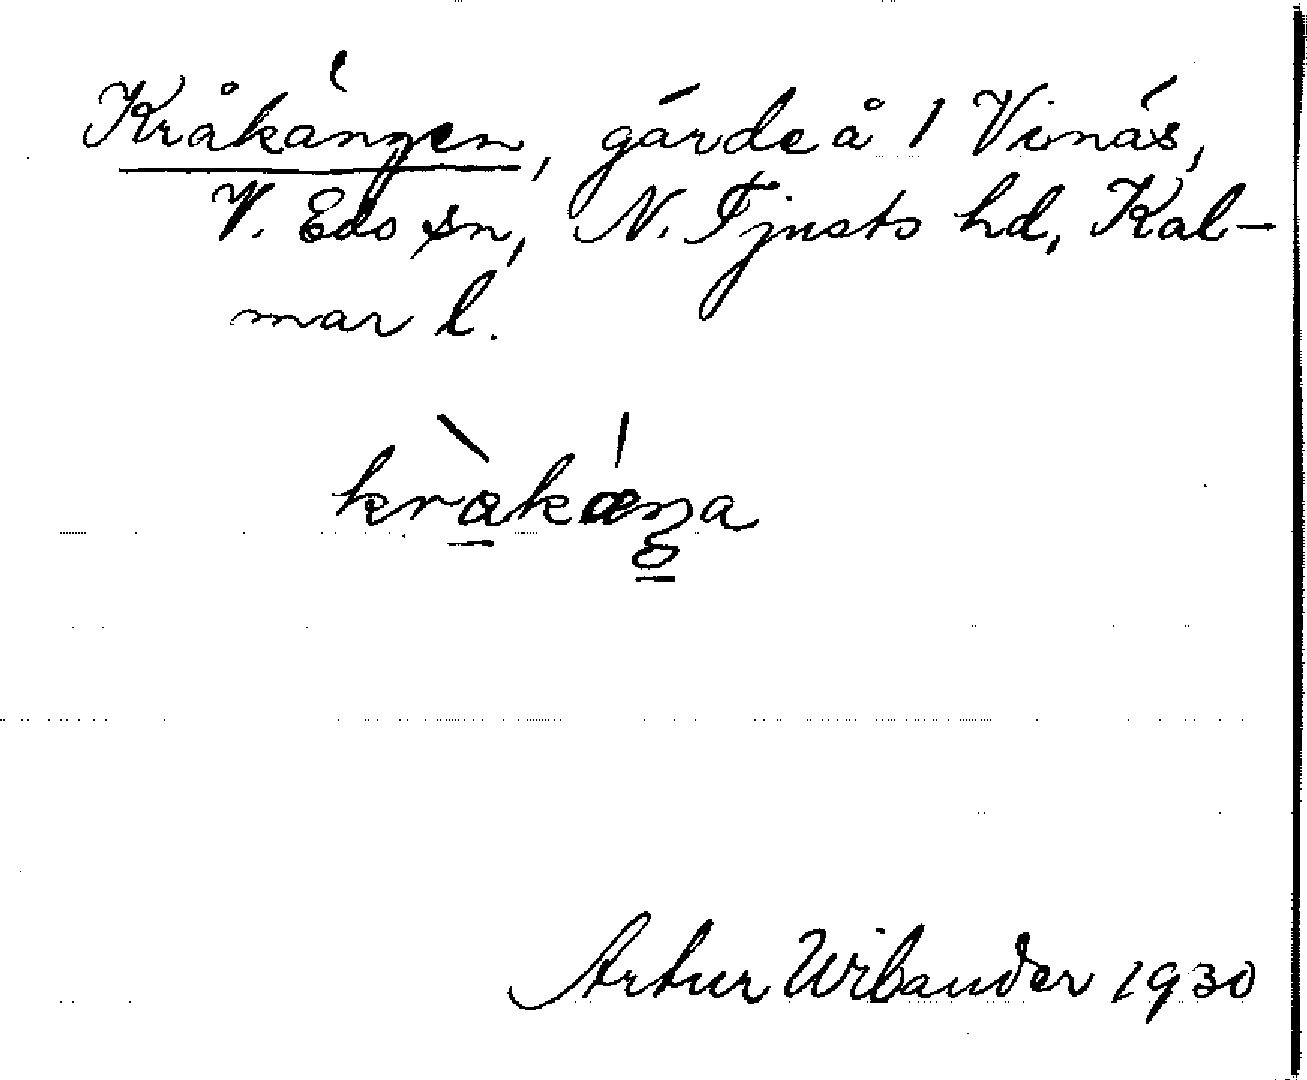 Kråkängen, gärde å 1 Vinäs,
V. Eds sn, N. Tjusts hd, Kal-
mar l.
Artur Wibander 1930